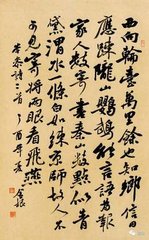 西向輪臺萬里餘也知鄉信日
應疎隴山鸚鵡能言語為報
家人數寄書秦山數點似青
黛渭水一條白如練京師故人不
可見寄將兩眼看飛燕
岑參詩二首丁酉年夏